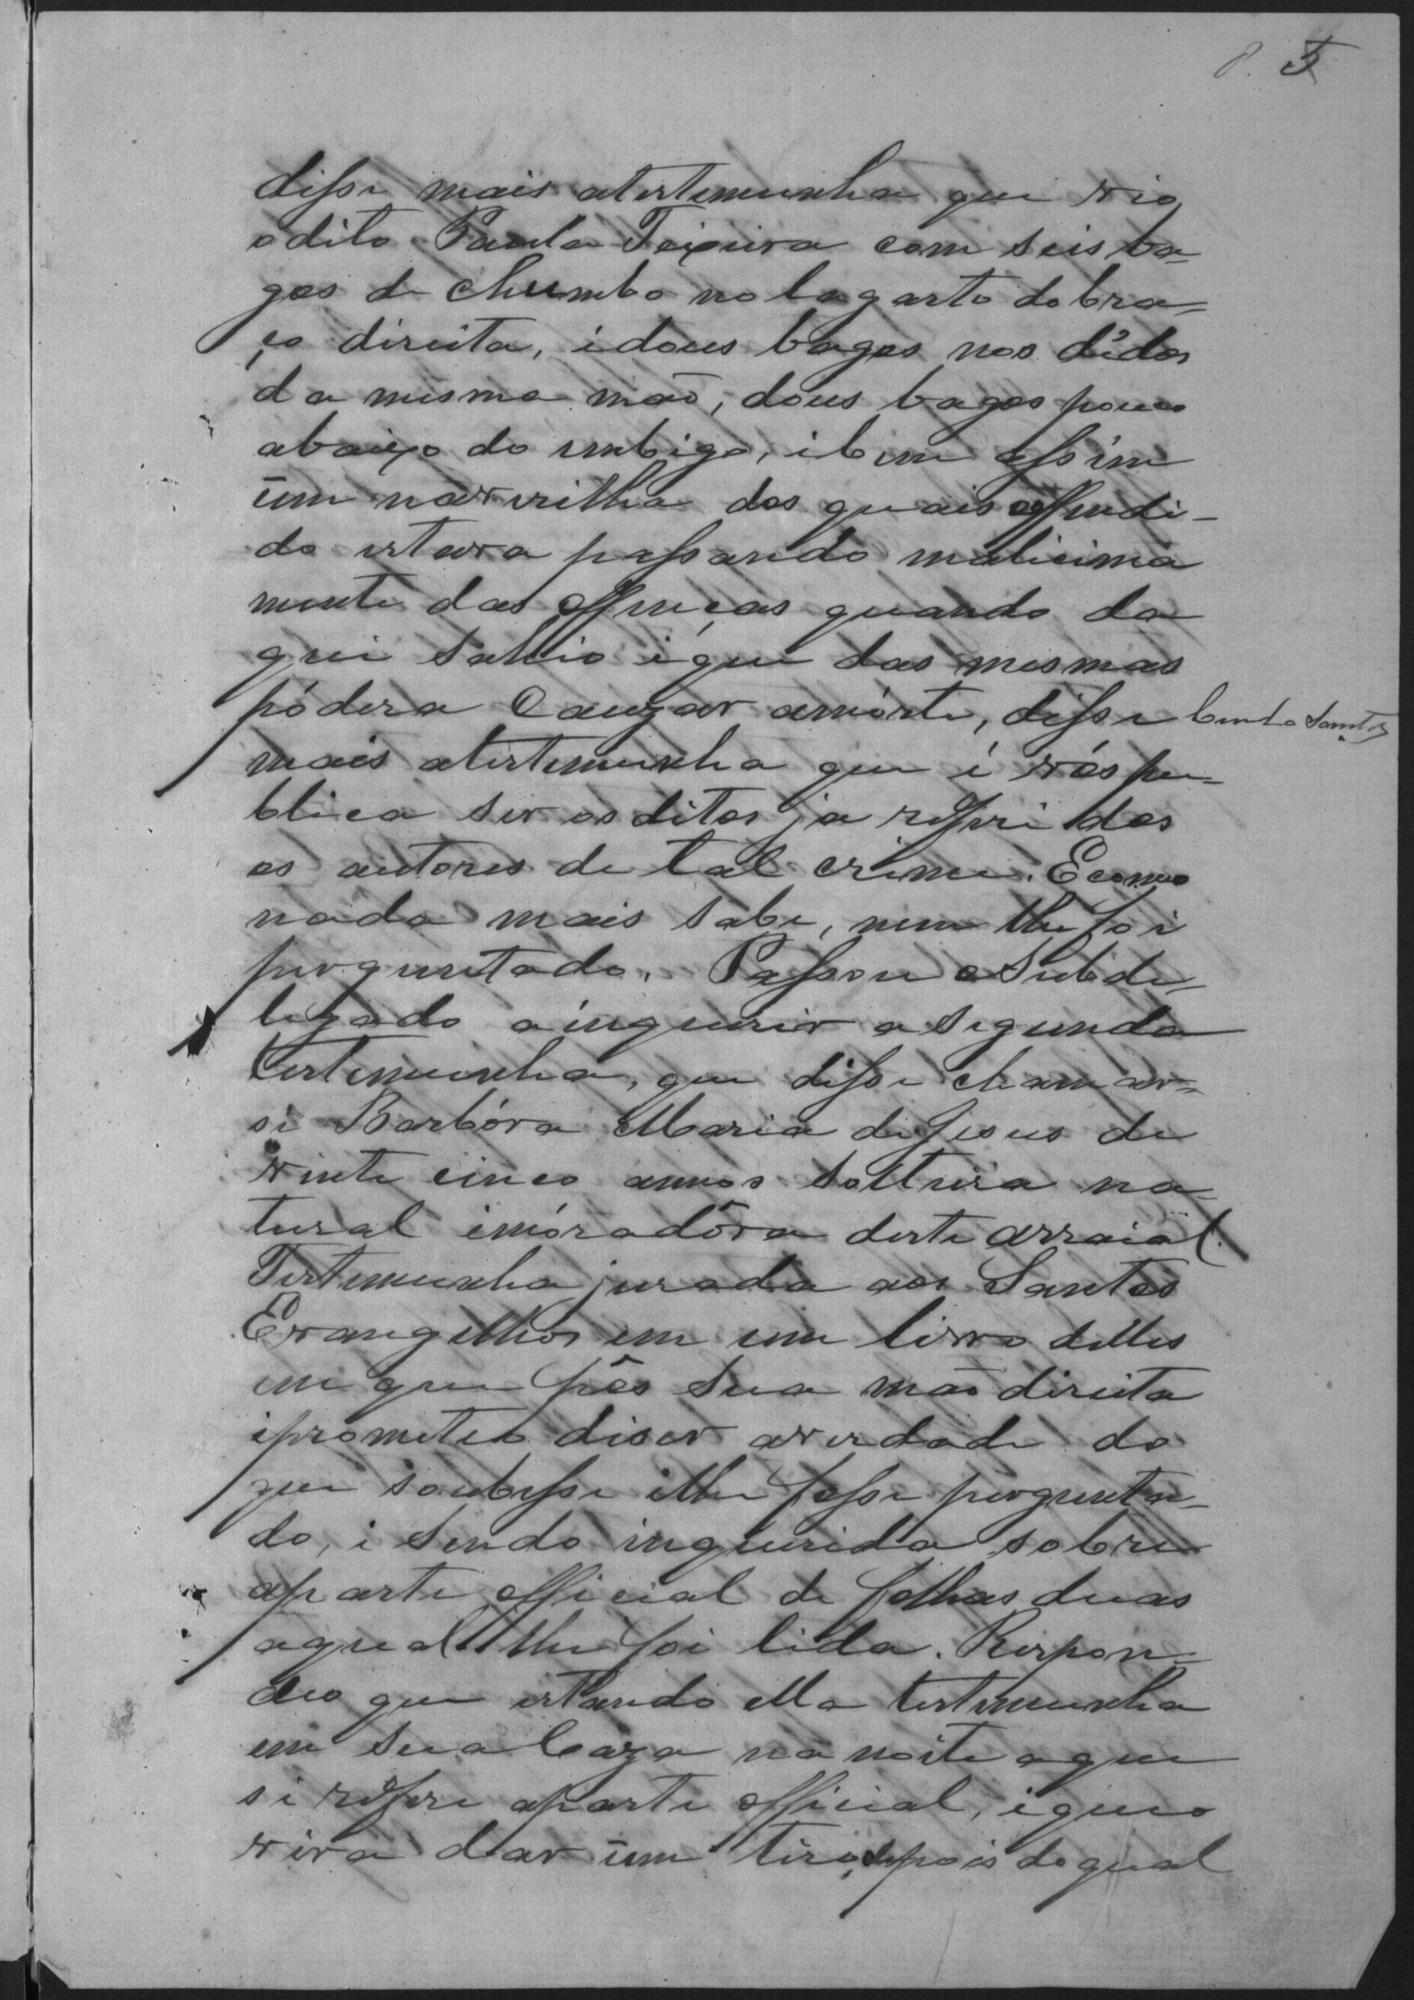 5
disse mais atestemunha que vio
odito Paula Teixeira com seis ba-
gos de chumbo no lagarto do bra-
ço direito, i dous bagos nos dêdos
da mesma mão, dous bagos pouco
abaixo do umbigo, i bem assim
um na virilha dos quais offendi-
do istava passando malicima
mente das offenças quando da
qui sahio i que das mesmas
pódera Cauzar amórte, disse
Cunha Santos
mais atestemunha que é vós pu-
blica ser os ditos ja refiridos
os autores de tal crime. E como
nada mais sabe, nem lhe foi
perguntado. Passou o Subde-
legado a inquirir a segunda
testemunha, que disse chamar-
si Barbóra Maria de Jesus de
vinte cinco annos solteira na
tural i móradôra deste arraial.
Testemunha jurada aos Santos
Evangelhos em um livro delles
em que pôs sua mão direita
i prometeo diser averdade do
que soubesse i lhe fosse pergunta-
do, i sendo inquirida sobre
aparte official de folhas duas
aqual lhe foi lida. Respon-
deo que istando ella testemunha
em sua Caza na noite aque
si refere aparte official, i que o
vira dar um tiro, depois do qual